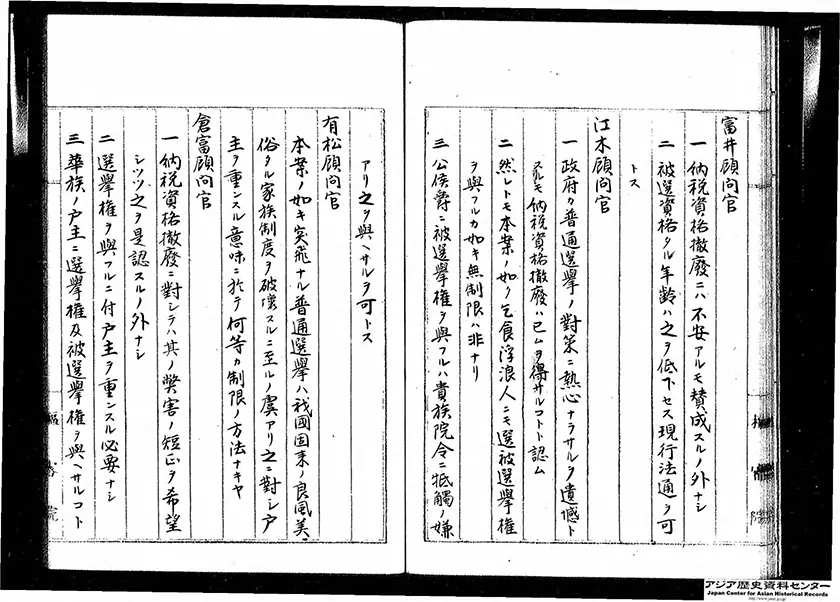 富井顧問官
一 納税資格撤廃ニハ不安アルモ賛成スルノ外ナシ
二 被選資格タル年齢ハ之ヲ低下セス現行法通ヲ可
トス
江木顧問官
一 政府カ普通選挙ノ対策ニ熱心ナラサルヲ遺憾ト
スルモ納税資格撤廃ハ已ムヲ得サルコトト認ム
二 然レトモ本案ノ如ク乞食浮浪人ニモ選被選挙権
ヲ與フルカ如キ無制限ハ非ナリ
三 公侯爵ニ被選挙権ヲ與フルハ貴族院令ニ牴觸ノ嫌
アリ之ヲ與ヘサルヲ可トス
有松顧問官
本案ノ如キ突飛ナル普通選挙ハ我國固来ノ良風美
俗タル家族制度ヲ破壊スルニ至ルノ虞アリ之ニ對シ戸
主ヲ重ンスル意味ニ於テ何等カ制限ノ方法ナキヤ
倉富顧問官
一 納税資格撤廃ニ對シテハ其ノ弊害ノ短正ヲ希望
シツツ之ヲ是認スルノ外ナシ
二 選挙権ヲ與フルニ付戸主ヲ重ンスル必要ナシ
三 華族ノ戸主ニ選挙権及被選挙権ヲ與ヘサルコト
樞密院
アジア歴史資料センター
Japan Center for Asian Historical Records